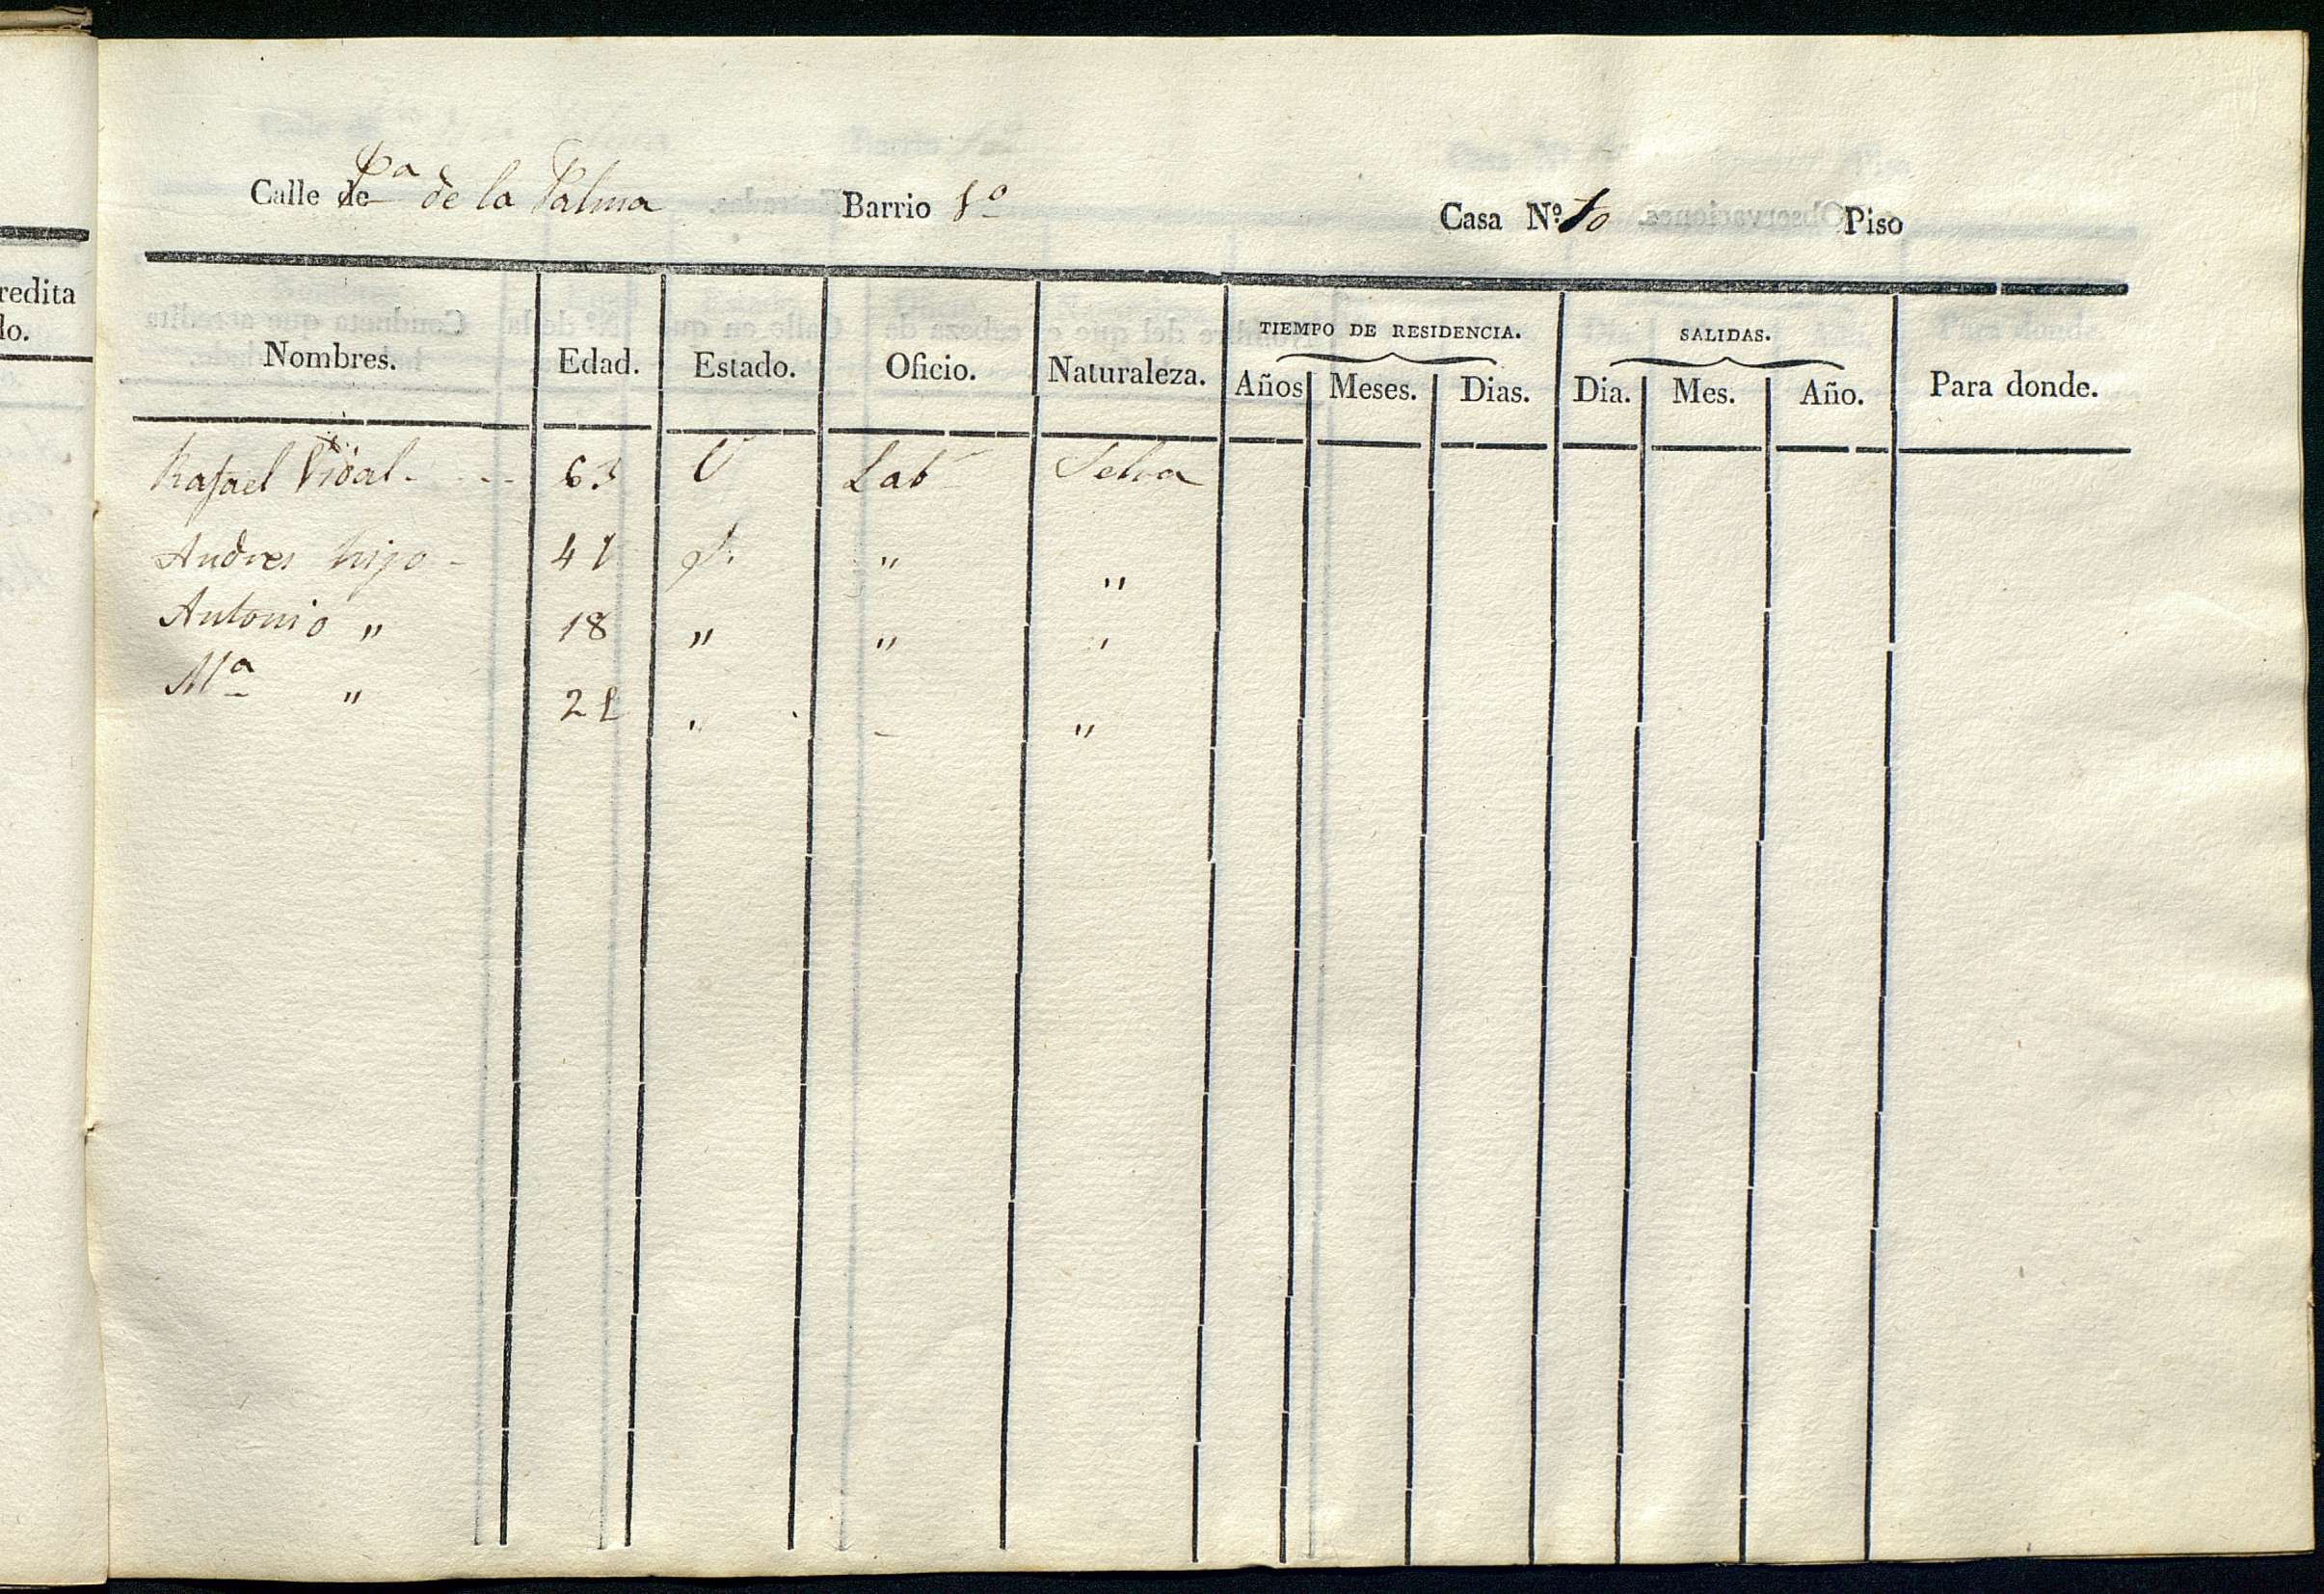 redita
do.
Calle de Pa de la Palma Barrio 1o Casa No. 10 Piso
Nombres. Edad. Estado. Oficio. Naturaleza. TIEMPO DE RESIDENCIA. Años Meses. Dias. SALIDAS. Dia. Mes. Año. Para donde.
Rafael Vidal - - - 63 V Labr Selva
Andres hijo - 41 S. " "
Antonio " 18 " " "
Ma " 21 " - "